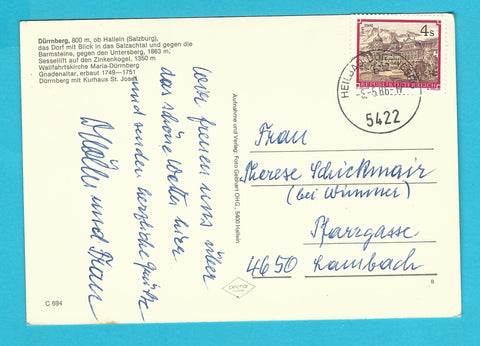 Dürrnberg, 800 m, ob Hallein (Salzburg),
das Dorf mit Blick in das Salzachtal und gegen die
Barmsteine, gegen den Untersberg, 1863 m,
Sessellift auf den Zinkenkogel, 1350 m
Wallfahrtskirche Maria-Dürrnberg
Gnadenaltar, erbaut 1749—1751
Dürrnberg mit Kurhaus St. Josef
Wir freuen uns über
das schöne Wetter hier
und senden herzliche Grüße
und Frau
C 694
Aufnahme und Verlag: Foto Gebhart OHG., 5400 Hallein
pechar
B
4 S
REPUBLIK ÖSTERREICH
HEILBAD
5422
Frau
Therese Schickmair
(bei Wimmer)
Pfarrgasse
4650 Lambach